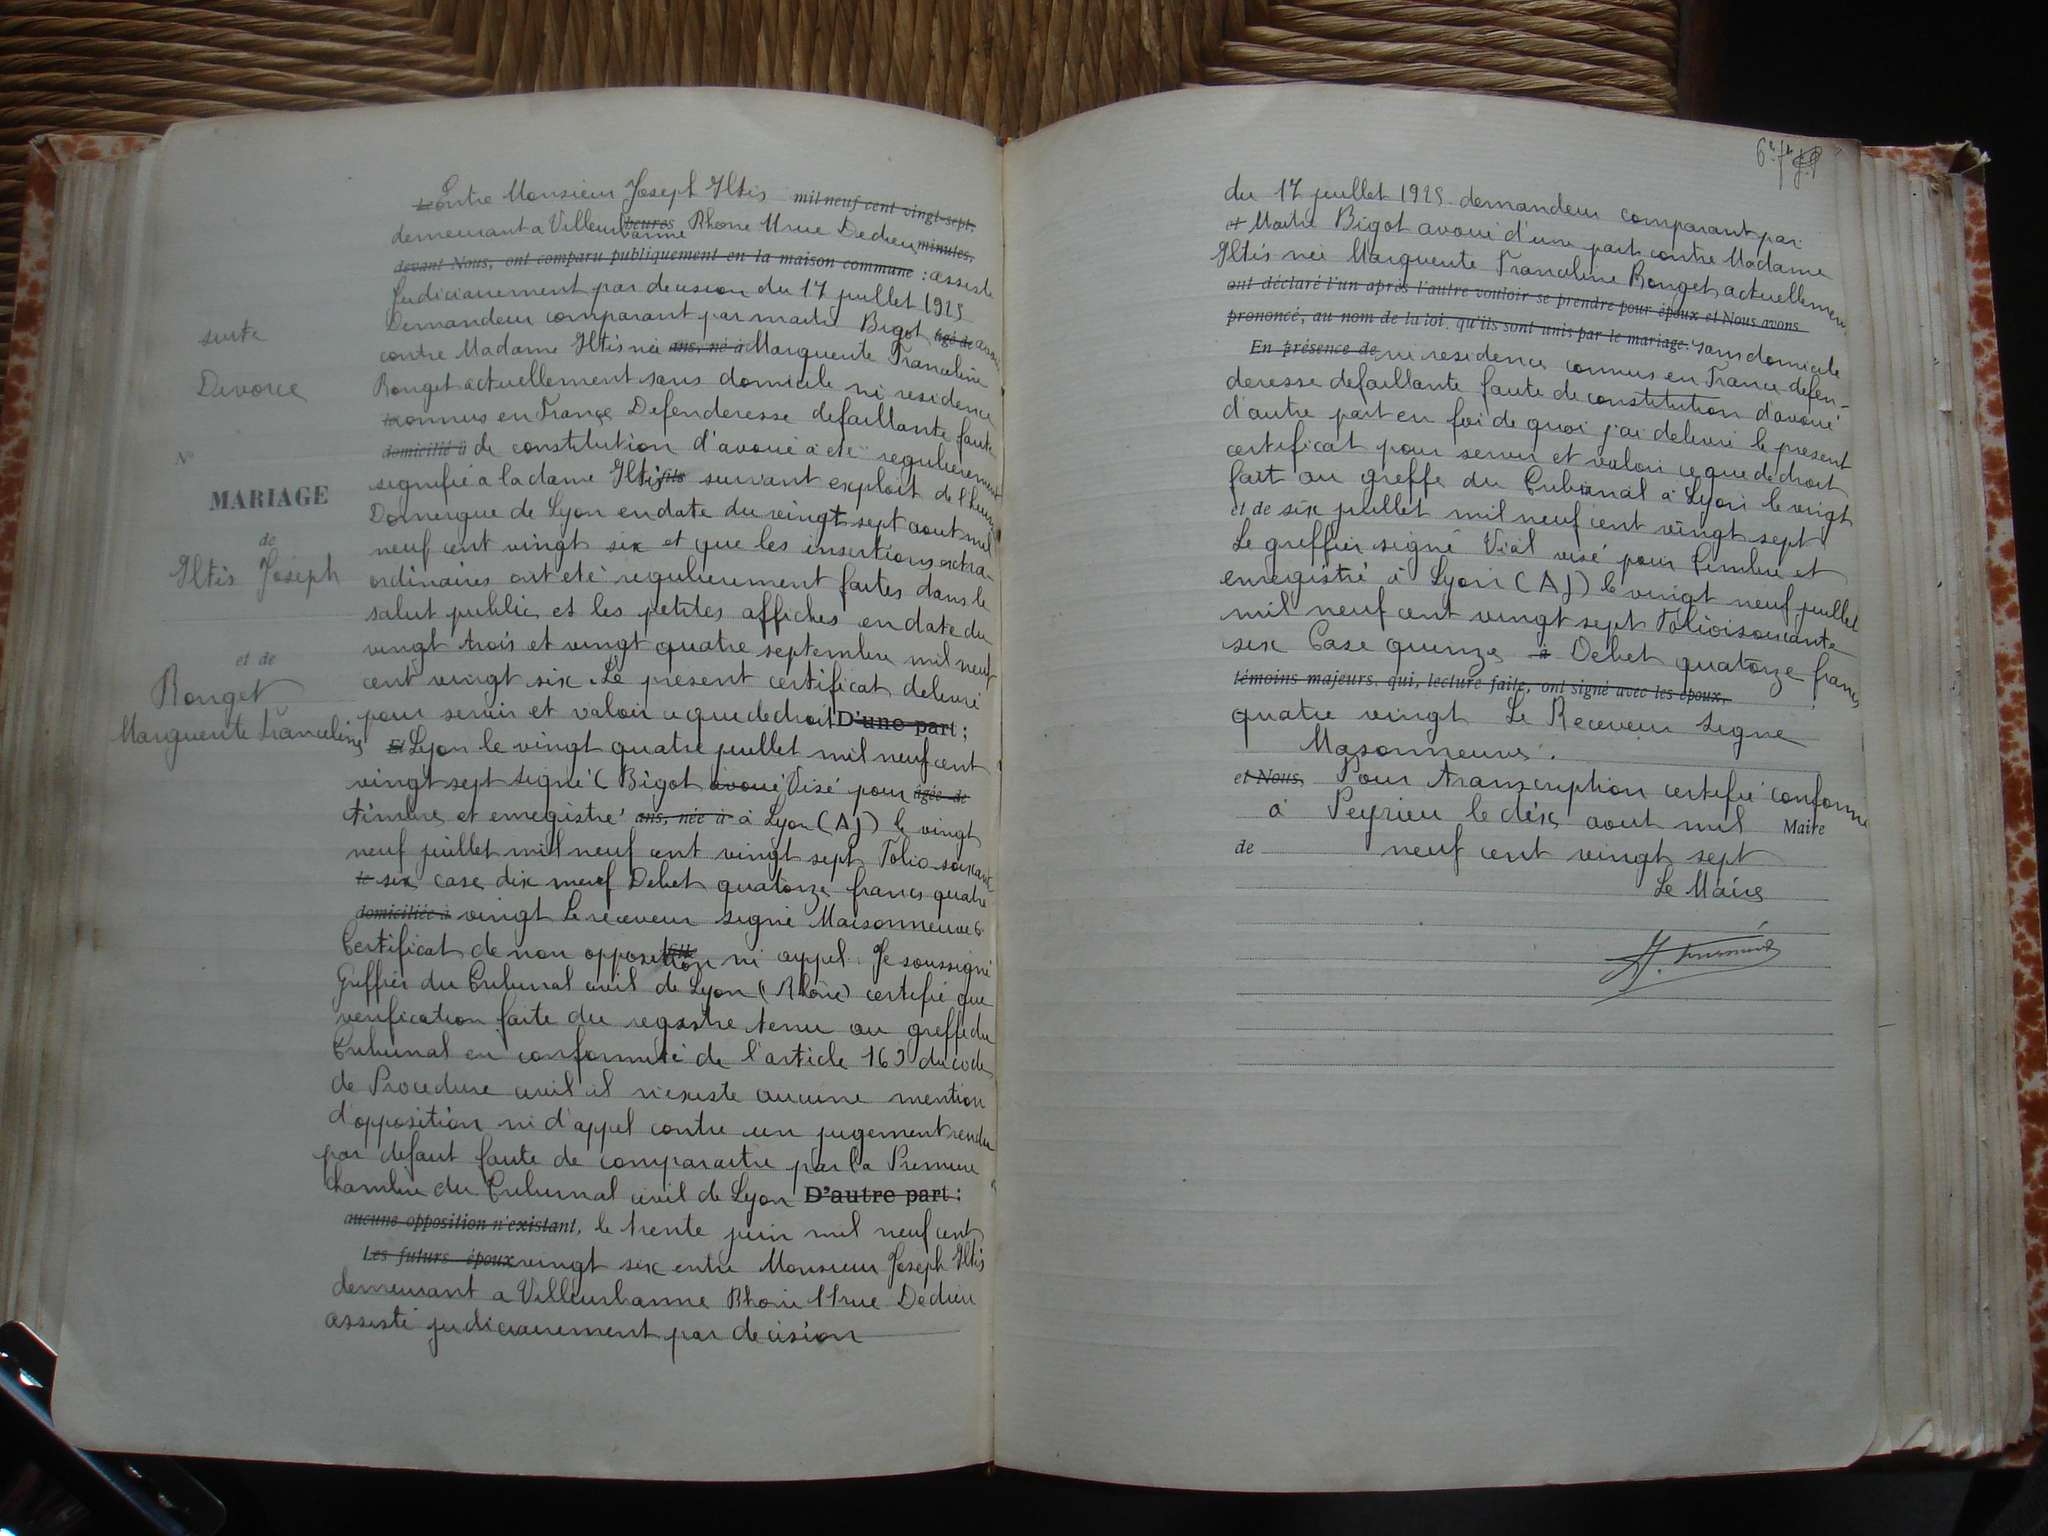 suite
Divorce
N°
MARIAGE
de
Iltis Joseph
et de
Ronget
Marguerite Franceline
Le Entre Monsieur Joseph Iltis mil neuf cent vingt-sept,
demeurant a Villeurbanne heures Rhone 11 rue Dedieu minutes,
devant Nous, ont comparu publiquement en la maison commune : assisté
Judiciairement par decision du 17 juillet 1925
Demandeur comparant par maitre Bigot âgé de avoué
contre Madame Iltis née ans, né à Marguerite Franceline
Ronget actuellement sans domicile ni residence
connus en France Defenderesse defaillante faute
domicilié à de constitution d'avoué à été regulierement
signifié a la dame Iltis fils suivant exploit de l'huissier
Domergue de Lyon en date du vingt sept aout mil
neuf cent vingt six et que les insertions extra-
ordinaires ont eté regulierement faites dans le
salut public et les petites affiches en date du
vingt trois et vingt quatre septembre mil neuf
cent vingt six. Le present certificat delivré
pour servir et valoir ce que de droit D'une part;
Et Lyon le vingt quatre juillet mil neuf cent
vingt sept signé (Bigot avoué) Visé pour âgée de
timbre et enregistré ans, née à à Lyon (AJ) le vingt
neuf juillet mil neuf cent vingt sept Folio soixante
le six case dix neuf Debet quatorze francs quatre
domiciliée à vingt Le receveur signé Maisonneuve
Certificat de non opposition fille ni appel. Je soussigné
Greffier du Tribunal civil de Lyon (Rhône) certifié que
verification faite du registre tenu au greffe du
Tribunal en conformité de l'article 163 du code
de Procedure civil il n'existe aucune mention
d'opposition ni d'appel contre un jugement rendu
par defaut faute de comparaitre par la Premiere
chambre du Tribunal civil de Lyon D'autre part :
aucune opposition n'existant, le trente juin mil neuf cent
Les futurs époux vingt six entre Monsieur Joseph Iltis
demeurant a Villeurbanne Rhone 11 rue Dedieu
assisté judiciairement par decision
du 17 juillet 1925 demandeur comparant par
et Maitre Bigot avoué d'une part, contre Madame
Iltis née Marguerite Franceline Ronget actuellement
ont déclaré l'un après l'autre vouloir se prendre pour époux et Nous avons
prononcé, au nom de la loi, qu'ils sont unis par le mariage. sans domicile
En présence de ni residence connus en France défen-
deresse defaillante faute de constitution d'avoué
d'autre part en foi de quoi j'ai delivré le present
certificat pour servir et valoir ce que de droit
fait au greffe du Tribunal à Lyon le vingt
et de six juillet mil neuf cent vingt sept
Le greffier signé Vial visé pour timbre et
enregistré à Lyon (AJ) le vingt neuf juillet
mil neuf cent vingt sept Folio soixante
six Case quinze à Debet quatorze francs
témoins majeurs, qui, lecture faite, ont signé avec les époux,
quatre vingt Le Receveur signé
Maisonneuve.
et Nous, Pour transcription certifié conforme
à Peyrieu le dix aout mil Maire
de neuf cent vingt sept
Le Maire